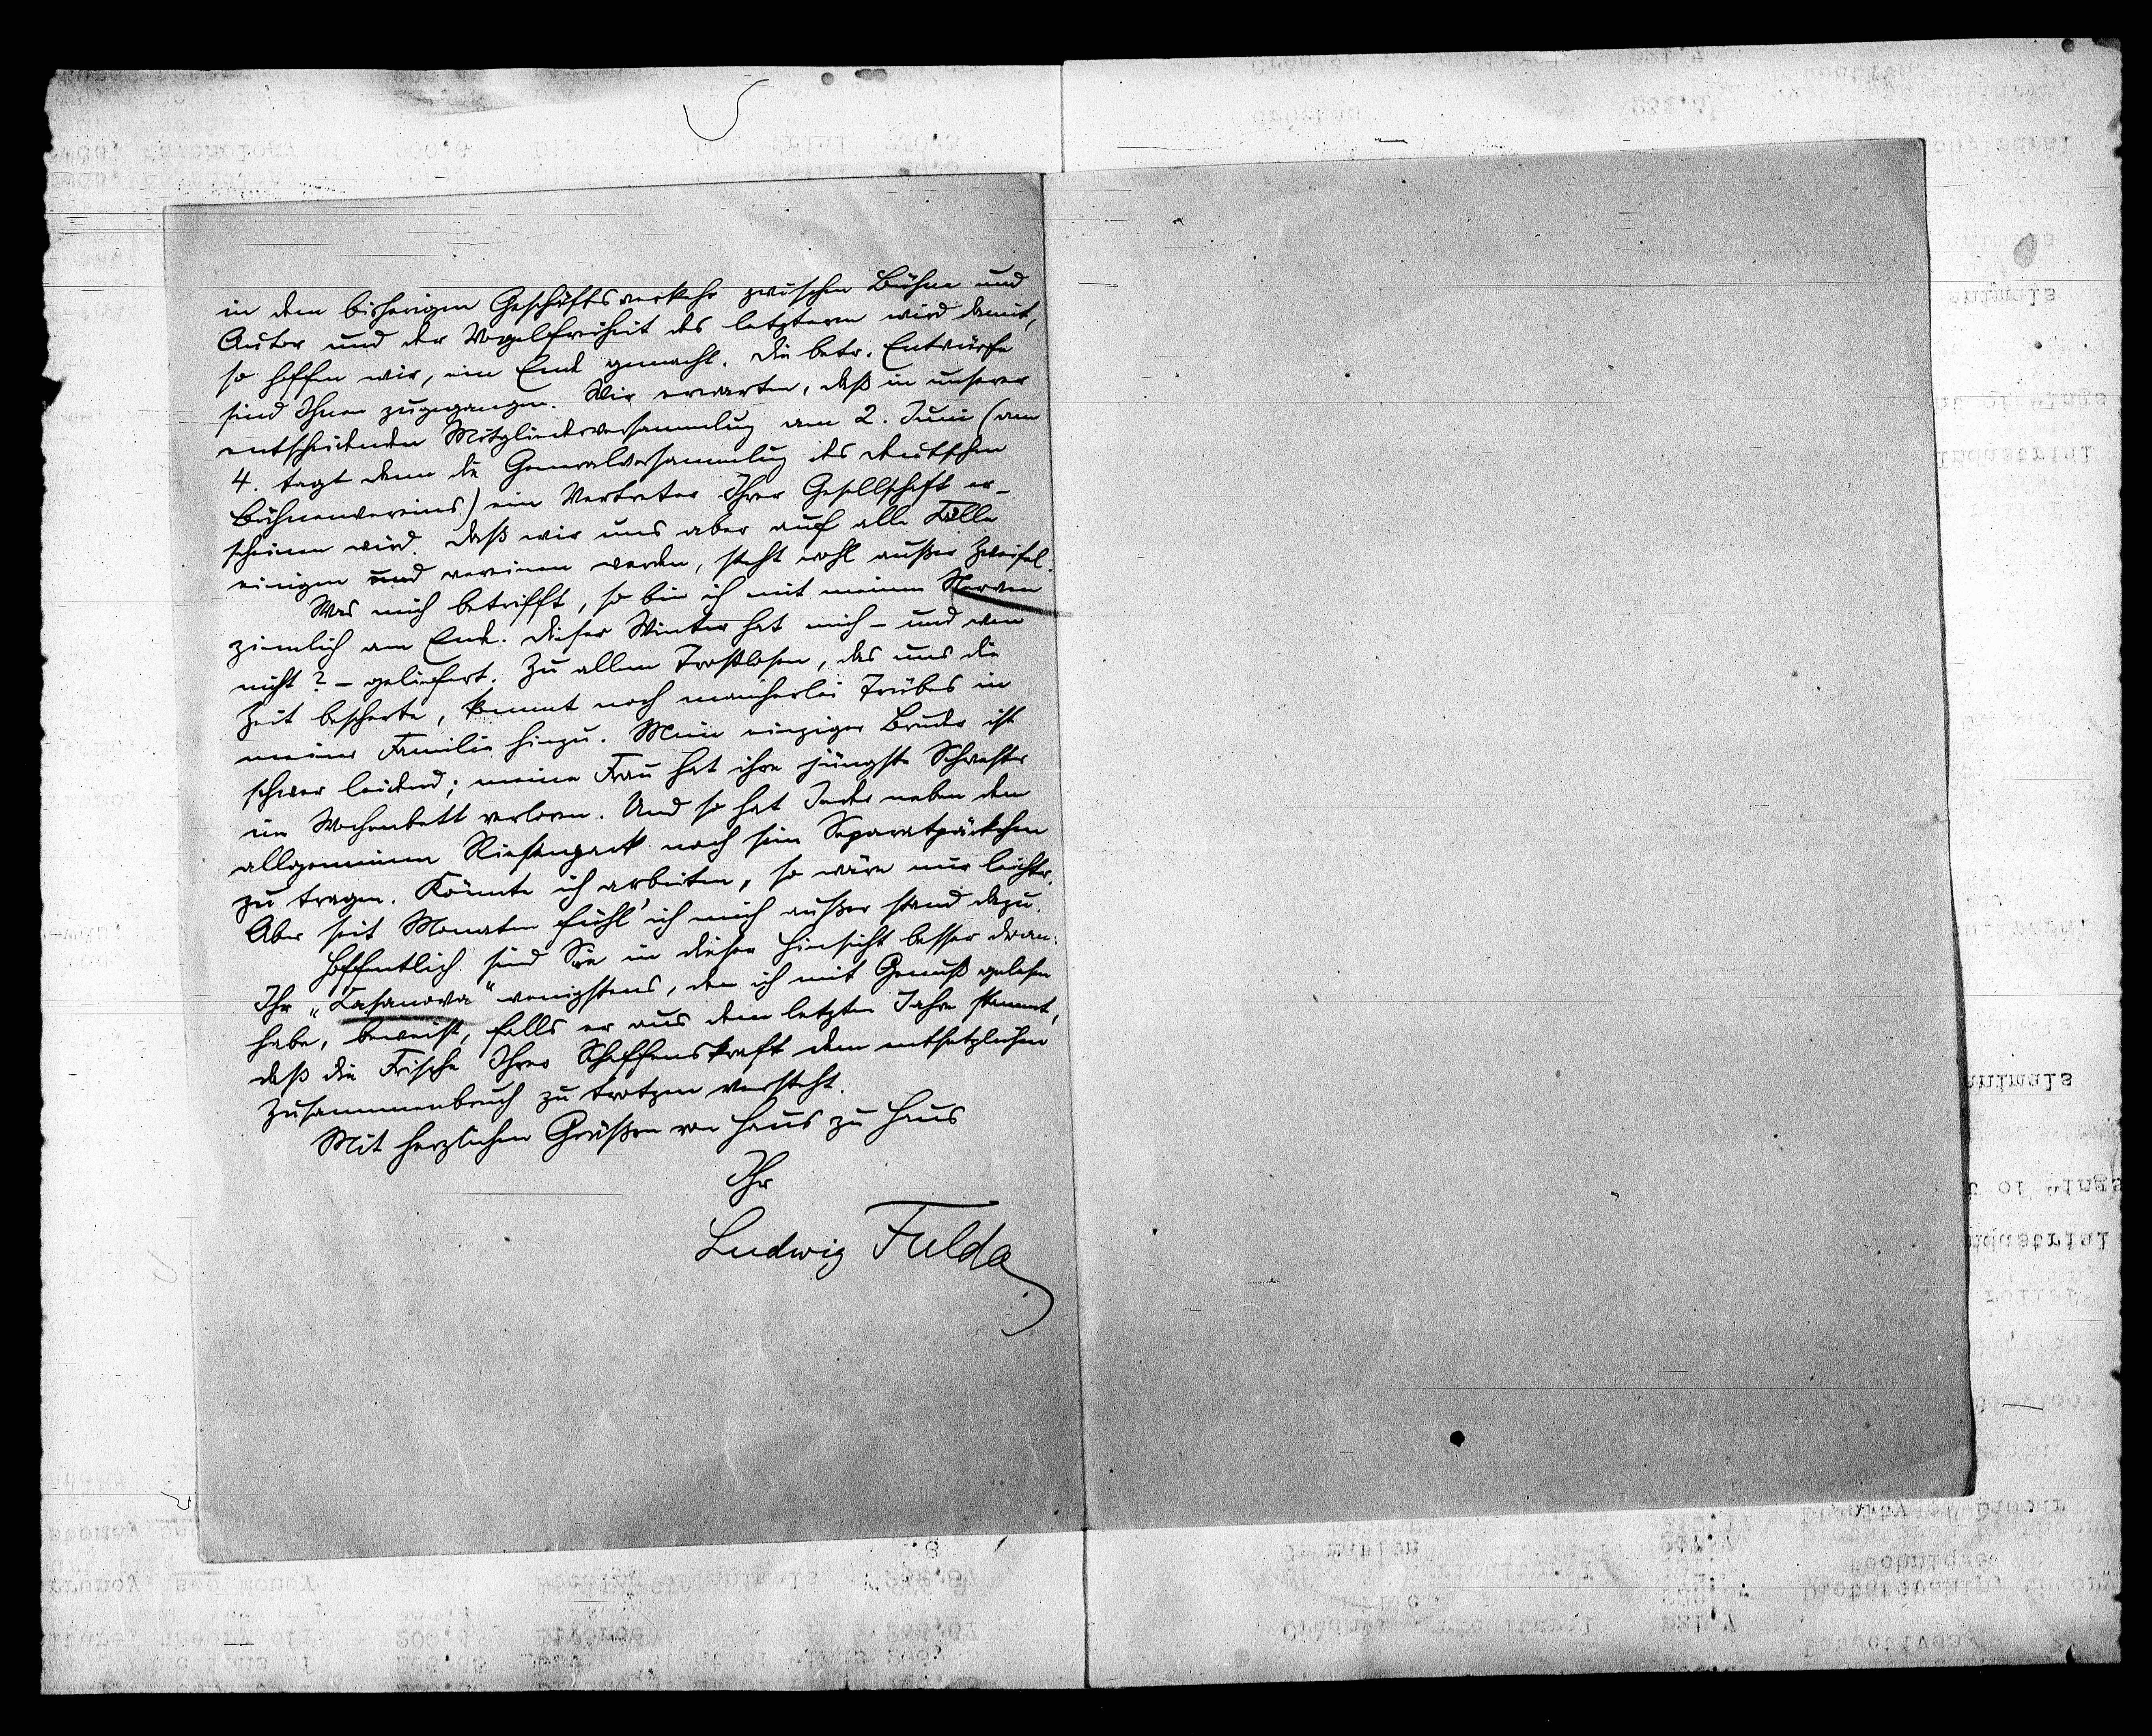 in dem bisherigen Geschäftsverkehr zwischen Bühne und
Autor und der Vogelfreiheit des letzteren wird damit,
so hoffen wir, ein Ende gemacht. Die betr. Entwürfe
sind Ihnen zugegangen. Wir erwarten, daß in unserer
entscheidenden Mitgliederversammlung am 2. Juni (am
4. tagt dann die Generalversammlung des deutschen
Bühnenvereins) ein Vertreter Ihrer Gesellschaft er-
scheinen wird. Daß wir uns aber auf alle Fälle
einigen und vereinen werden, steht wohl außer Zweifel.
Was mich betrifft, so bin ich mit meinen Nerven
ziemlich am Ende. Dieser Winter hat mich – und wen
nicht? – geliefert. Zu allem Trostlosen, das uns die
Zeit bescherte, kommt noch mancherlei Trübes in
meiner Familie hinzu. Mein einziger Bruder ist
schwer leidend; meine Frau hat ihre jüngste Schwester
im Wochenbett verloren. Und so hat Jeder neben dem
allgemeinen Riesenpack noch sein Separatpäckchen
zu tragen. Könnte ich arbeiten, so wäre mir leichter.
Aber seit Monaten fühl' ich mich außer stand dazu.
Hoffentlich sind Sie in dieser Hinsicht besser dran:
Ihr „Casanova“ wenigstens, den ich mit Genuß gelesen
habe, beweist, falls er aus dem letzten Jahre stammt,
daß die Frische Ihrer Schaffenskraft dem entsetzlichen
Zusammenbruch zu trotzen versteht.
Mit herzlichen Grüßen von Haus zu Haus
Ihr
Ludwig Fulda